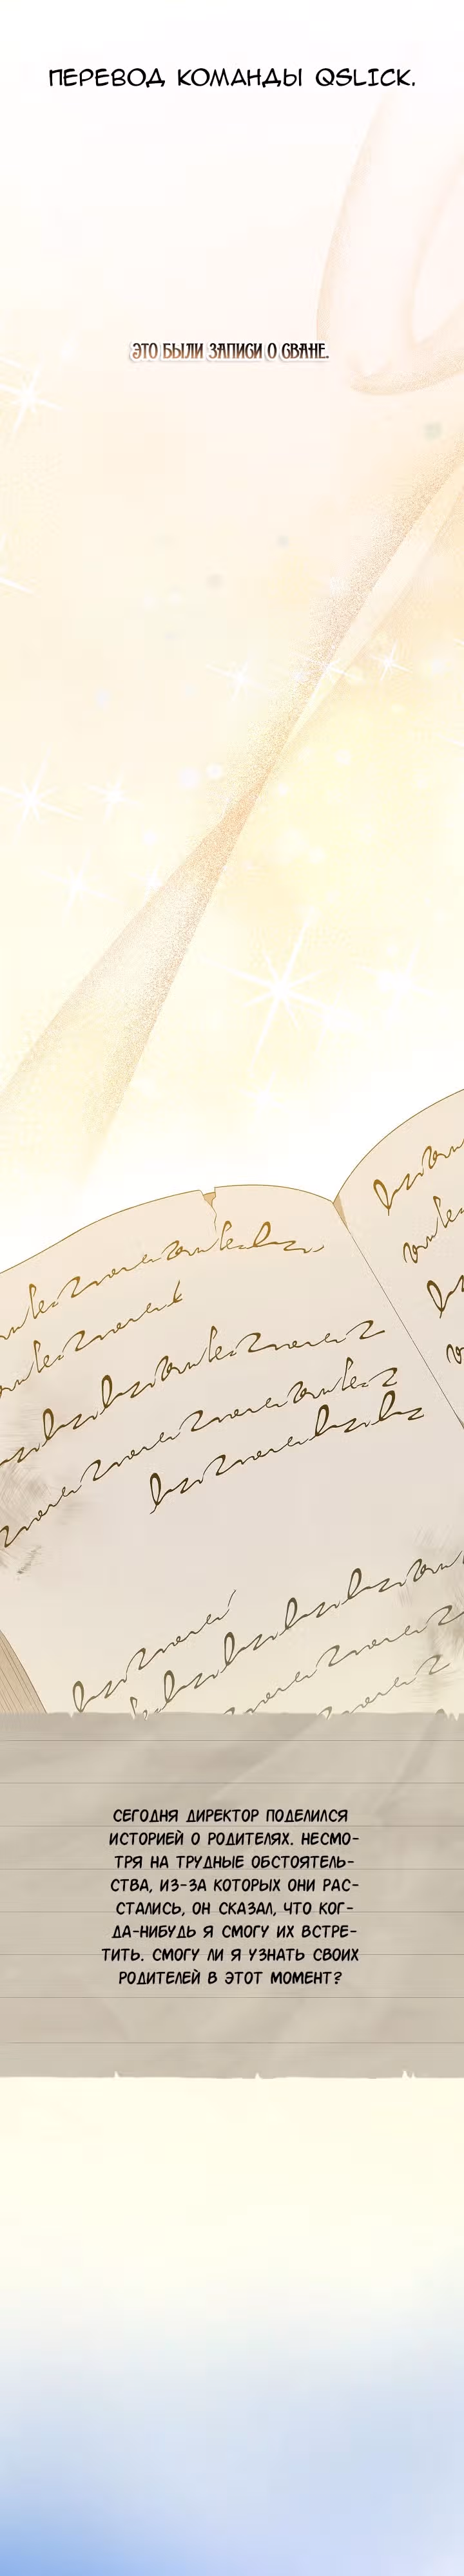 ПЕРЕВОД КОМАНДЫ QSLICK.
ЭТО БЫЛИ ЗАПИСИ О СВАНЕ.
СЕГОДНЯ ДИРЕКТОР ПОДЕЛИЛСЯ
ИСТОРИЕЙ О РОДИТЕЛЯХ. НЕСМО-
ТРЯ НА ТРУДНЫЕ ОБСТОЯТЕЛЬ-
СТВА, ИЗ-ЗА КОТОРЫХ ОНИ РАС-
СТАЛИСЬ, ОН СКАЗАЛ, ЧТО КОГ-
ДА-НИБУДЬ Я СМОГУ ИХ ВСТРЕ-
ТИТЬ. СМОГУ ЛИ Я УЗНАТЬ СВОИХ
РОДИТЕЛЕЙ В ЭТОТ МОМЕНТ?